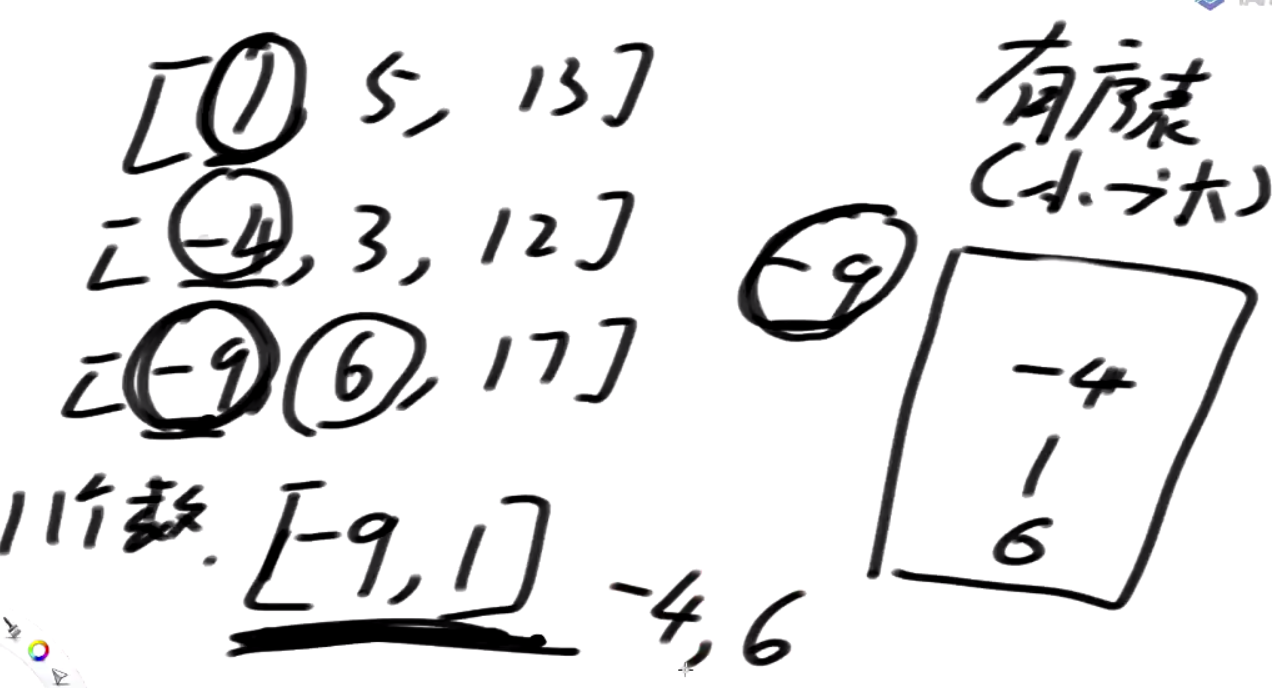 [1 5, 13]
[-4, 3, 12]
[-9 6, 17]
11个数. [-9, 1]
-4, 6
有序表
(小→大)
-9
-4
1
6